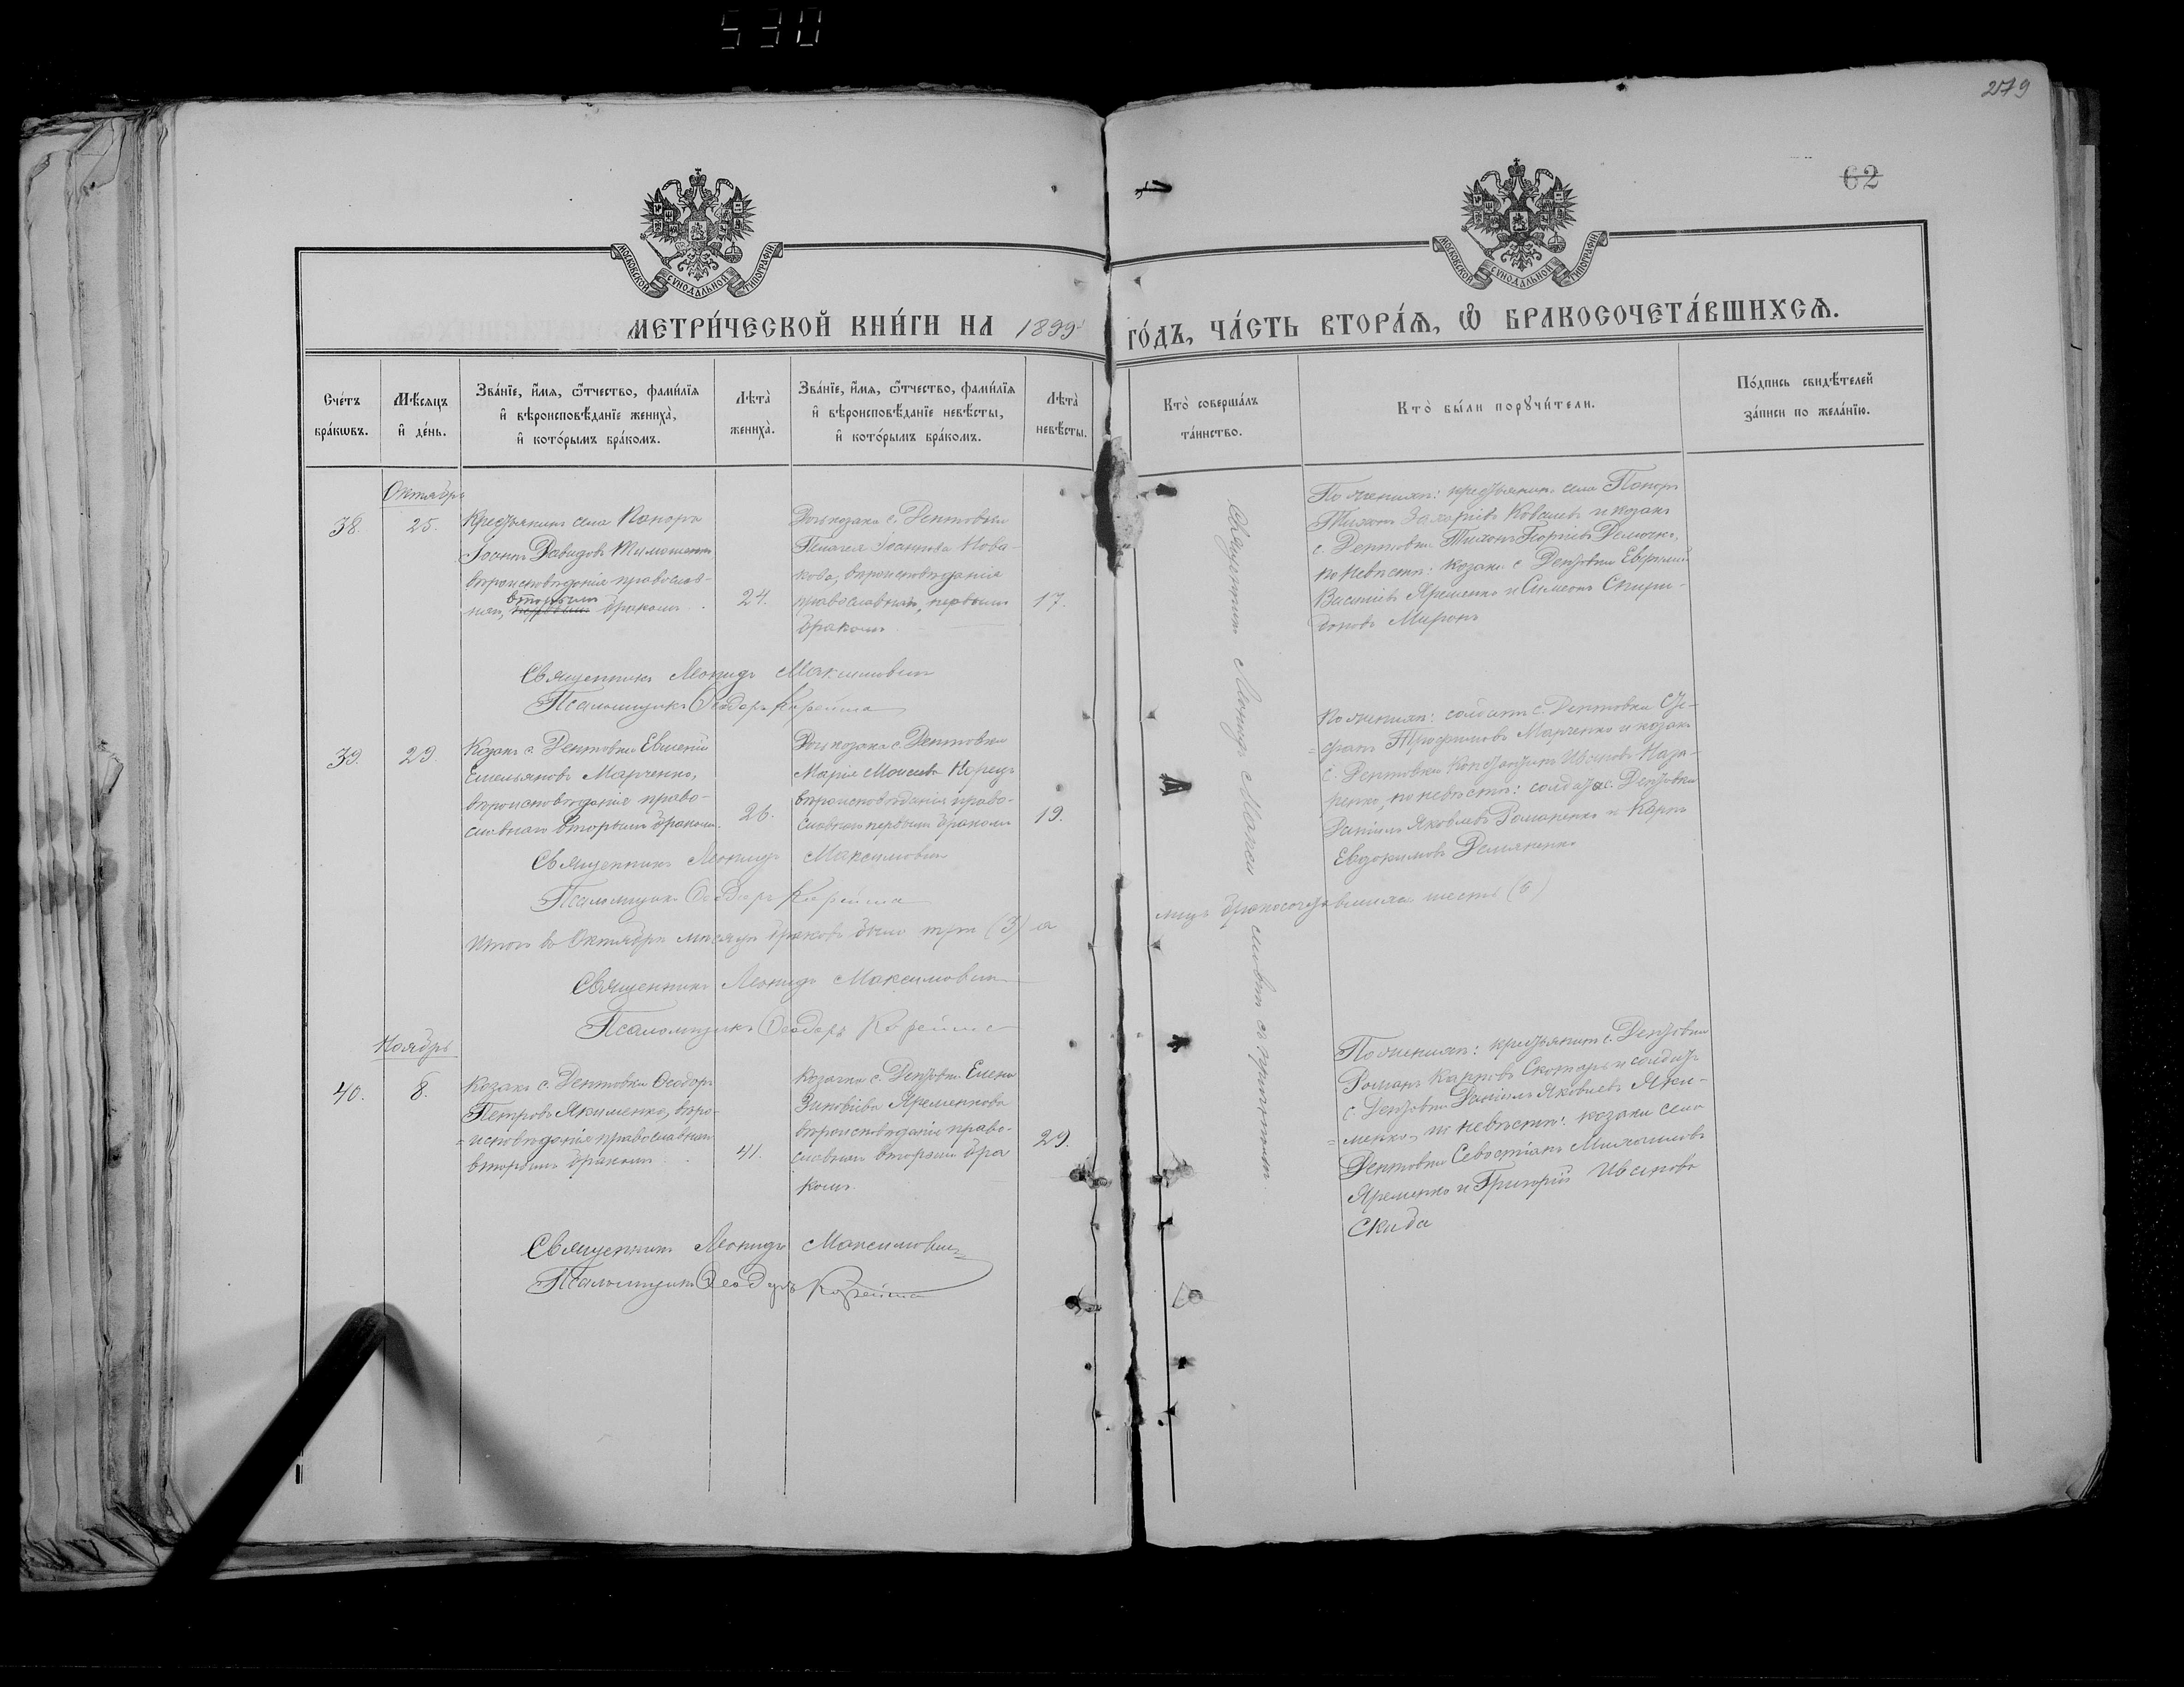 530
279
62
МОСКОВСКОЙ СУНОДАЛЬНОЙ ТИПОГРАФІИ
МОСКОВСКОЙ СУНОДАЛЬНОЙ ТИПОГРАФІИ
МЕТРИ́ЧЕСКОЙ КНИ́ГИ НА 1899 ГО́ДЪ, ЧА́СТЬ ВТОРА́Я, Ѽ БРАКОСОЧЕТА́ВШИХСѦ.
Сче́тъ бра́кѡвъ.
Мѣ́сяцъ и҆ де́нь.
Зва́нїе, и҆́мя, ѻ҆́тчество, фами́лїя
и҆ вѣроисповѣ́данїе жениха̀,
и҆ кото́рымъ бра́комъ.
Лѣта̀ жениха̀.
Зва́нїе, и҆́мя, ѻ҆́тчество, фами́лїя
и҆ вѣроисповѣ́данїе невѣ́сты,
и҆ кото́рымъ бра́комъ.
Лѣта̀ невѣ́сты.
Кто̀ соверша́лъ
та́инство.
Кто̀ бы́ли порꙋчи́тели.
По́дпись свидѣ́телей
за́писи по жела́нїю.
Октябрь
38.
25.
Крестьянинъ села
Іоаннъ Давидовъ
вѣроисповѣданія православ-
наго, вторымъ первымъ бракомъ
24.
Дочь козака с. Дептовки
Пелагея Іоаннова Нова-
кова, вѣроисповѣданія
православнаго, первымъ
бракомъ
17.
Священникъ Леонидъ Максимовичъ
По женихѣ: крестьянинъ села
Тихонъ Захаріевъ Ковалевъ и козакъ
с. Дептовки Тихонъ Георгіевъ
по невѣстѣ: козаки с. Дептовки
Василіевъ Яременко и Симеонъ Спири-
доновъ Миронъ
Священникъ Леонидъ Максимовичъ
Псаломщикъ Ѳеодоръ
39.
29.
Козакъ с. Дептовки Евгеній
Емельяновъ Марченко,
вѣроисповѣданія право-
славнаго вторымъ бракомъ.
26.
Дочь козака с. Дептовки
Марія Моисеева
вѣроисповѣданія право-
славнаго первымъ бракомъ
19.
По женихѣ: солдатъ с. Дептовки Сте-
фанъ Трофимовъ Марченко и козакъ
с. Дептовки Константинъ Ивановъ Наза-
ренко, по невѣстѣ: солдатъ с. Дептовки
Даніилъ Яковлевъ Романенко и Карпъ
Евдокимовъ
Священникъ Леонидъ Максимовичъ
Псаломщикъ Ѳеодоръ
Итого въ Октябрѣ мѣсяцѣ браковъ было три (3) а
лицъ бракосочетавшихся шесть (6)
Священникъ Леонидъ Максимовичъ
Псаломщикъ Ѳеодоръ
Ноябрь
40.
8.
Козакъ с. Дептовки Ѳеодоръ
Петровъ Якименко, вѣро-
исповѣданія православнаго
вторымъ бракомъ
41.
Козачка с. Дептовки Елена
Зиновіева Яременкова
вѣроисповѣданія право-
славнаго вторымъ бра
комъ
29.
По женихѣ: крестьянинъ с. Дептовки
Романъ Карповъ Скотарь и солдатъ
с. Дептовки Даніилъ Яковлевъ Яки-
менко, по невѣстѣ: козаки села
Дептовки Севастіанъ Михаиловъ
Яременко и Григорій Ивановъ
Скиба
Священникъ Леонидъ Максимовичъ
Псаломщикъ Ѳеодоръ